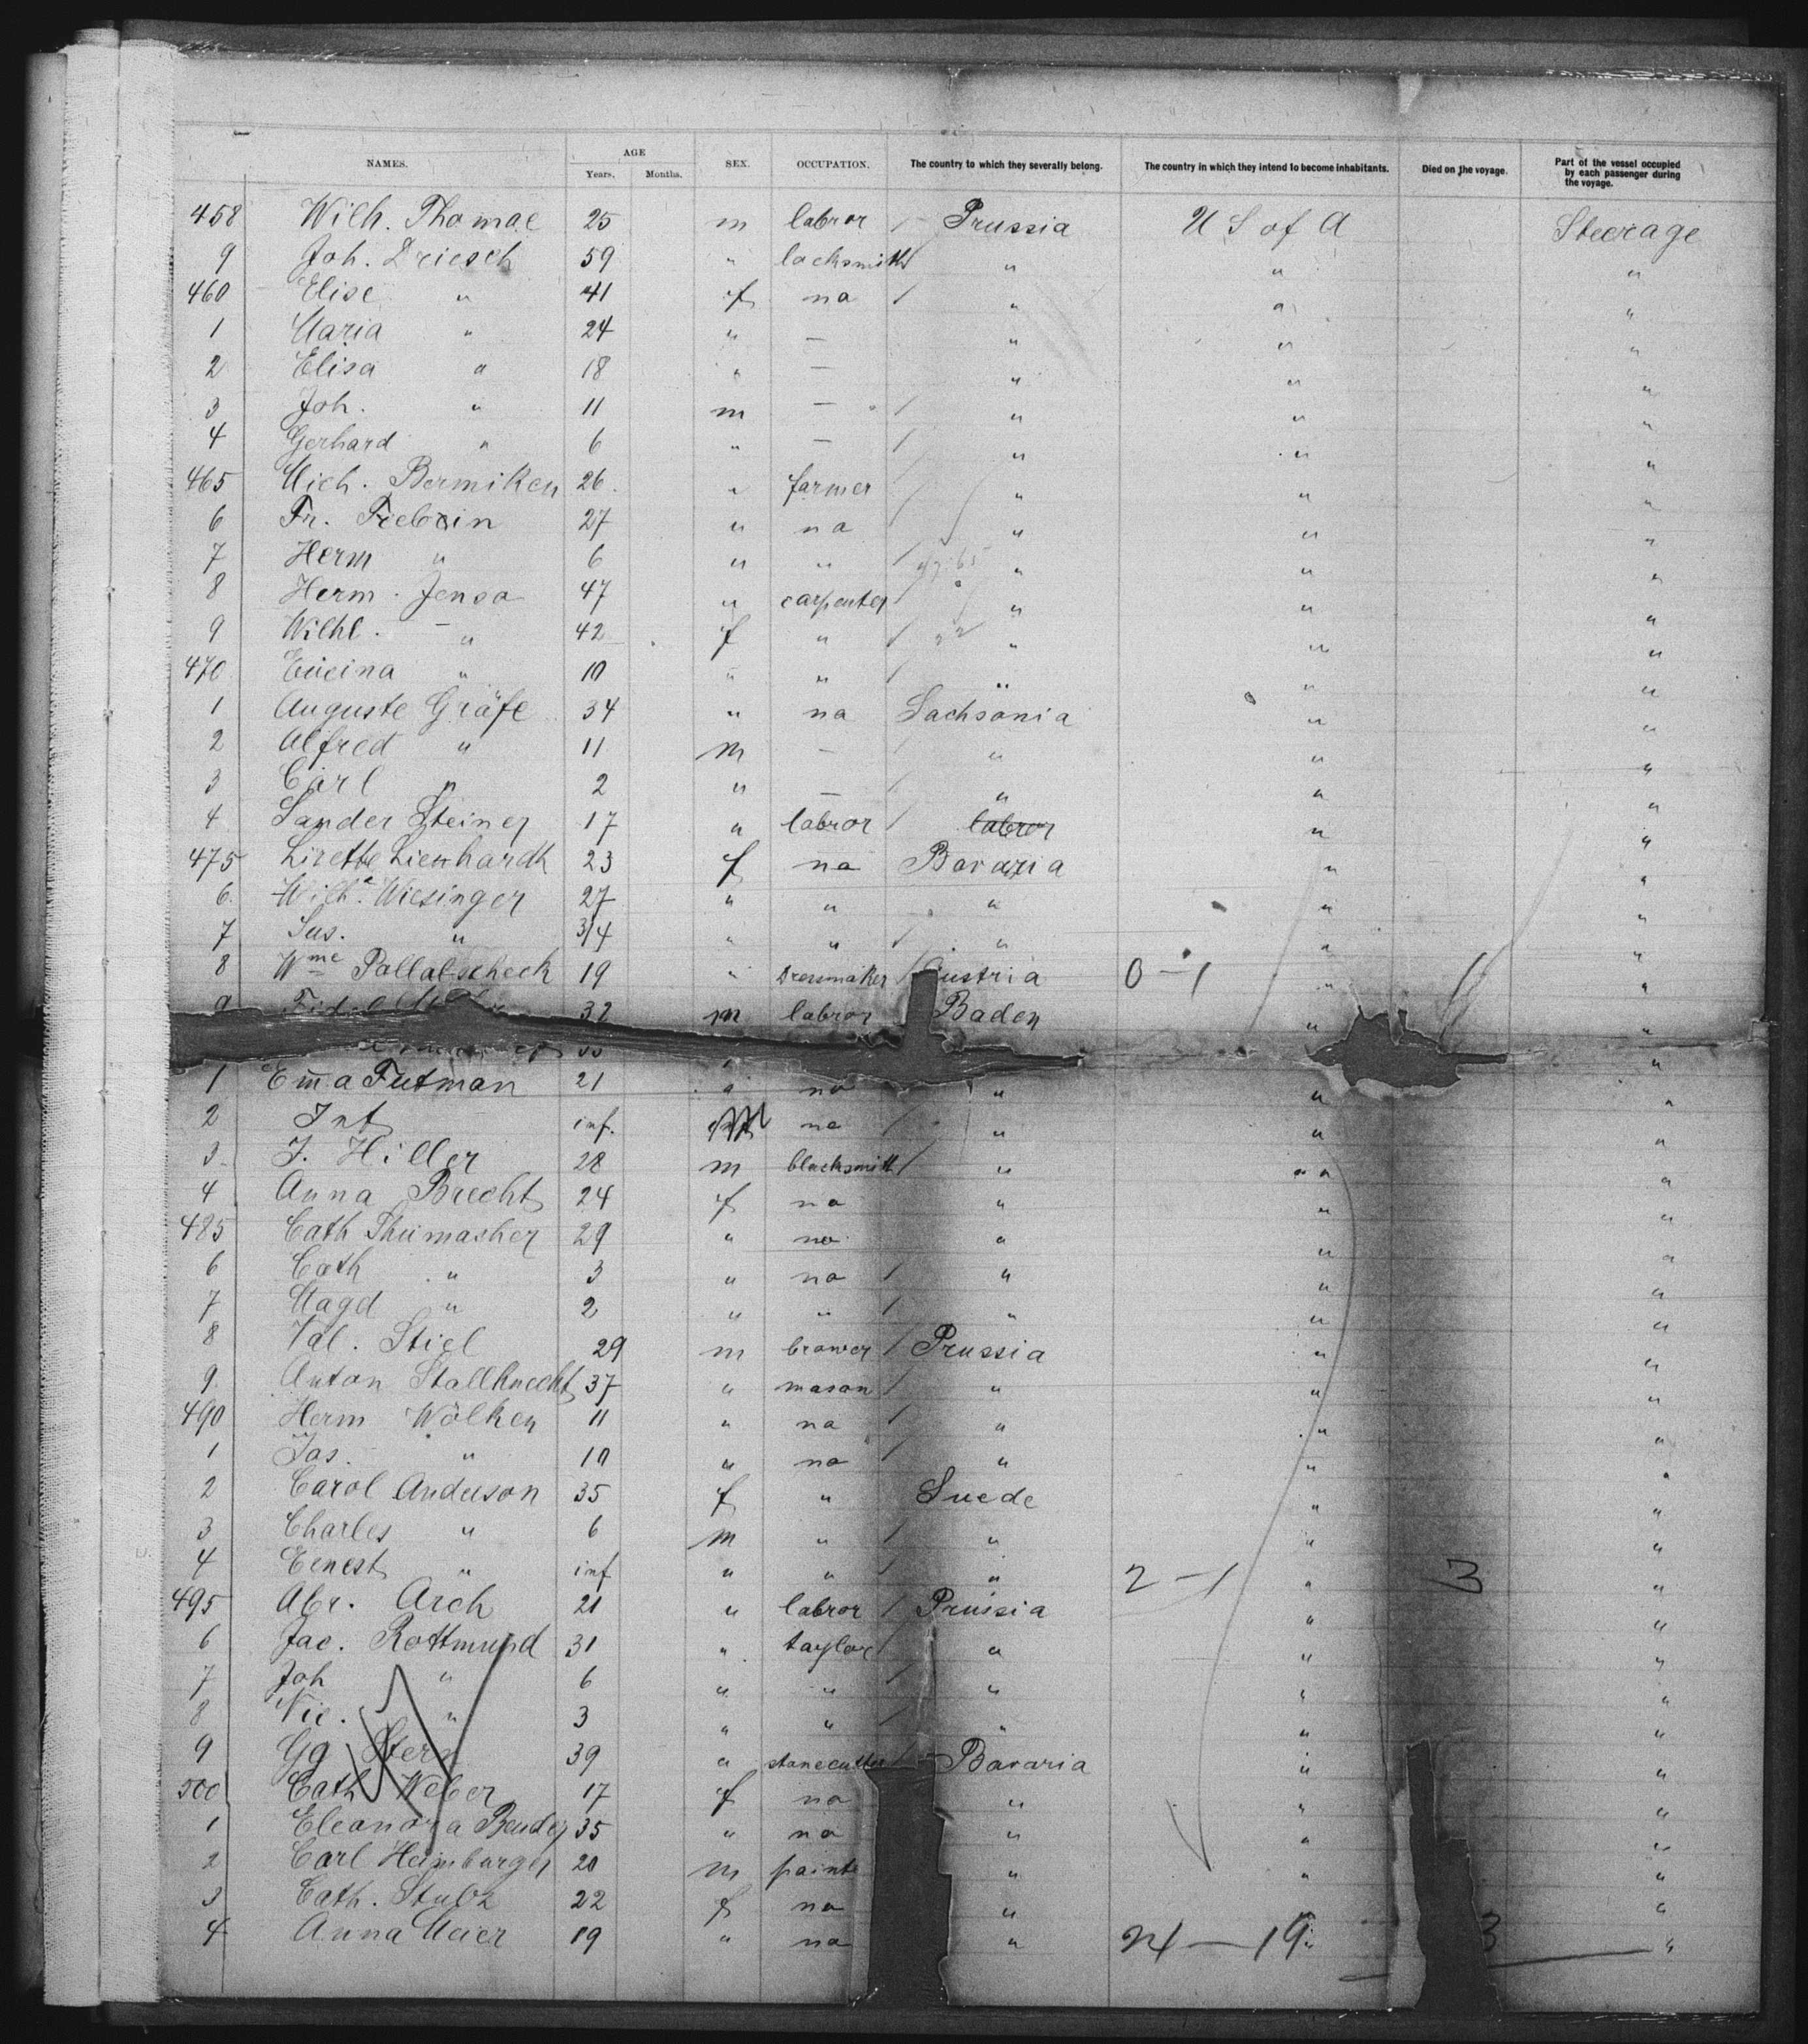 NAMES. AGE SEX. OCCUPATION. The country to which they severally belong. The country in which they intend to become inhabitants. Died on the voyage. Part of the vessel occupied by each passenger during the voyage.
Years. Months.
458 Wilh. Thomae 25 m labror / Prussia U S of A Steerage
9 Joh. Driesch 59 " locksmith " " "
460 Elise " 41 f na / " " "
1 Maria " 24 " — " " "
2 Elisa " 18 " — " " "
3 Joh. " 11 m — / " " "
4 Gerhard " 6 " — / " " "
465 Mich. Bermiken 26 " farmer / " " "
6 Fr. 27 " na / " " "
7 Herm " 6 " " / " " "
8 Herm. Jensa 47 " carpenter / " " "
9 Wilhl. " 42 f " / " " "
470 " 10 " " / " " "
1 Auguste Gräfe 34 " na Sachsonia " "
2 Alfred " 11 m — / " " "
3 Carl " 2 " — / " " "
4 Sander Steiner 17 " labror / labror " "
475 Lisette Lienhardt 23 f na Bavaria " "
6 Wilh.e Wiesinger 27 " " " " "
7 Sus. " 3/4 " " / " " "
8 Wme Pallatscheck 19 " Dressmaker / Austria 0 — 1 " "
9 32 m labror Baden " "
1 Em̄a Futman 21 " na " " "
2 Inf inf. m na / " " "
3 J. Hiller 28 m blacksmith / " " "
4 Anna Brecht 24 f na " " "
485 Cath Thumasher 29 " na " " "
6 Cath " 3 " na / " " "
7 Magd " 2 " " / " " "
8 Val. Stiel 29 m brower / Prussia " "
9 Anton Stallknecht 37 " mason / " " "
490 Herm Wölken 11 " na / " " "
1 Jos. " 10 " na / " " "
2 Carol Anderson 35 f " Suede " "
3 Charles " 6 m " / " " "
4 Ernest " inf " " / " 2 — 1 " 3 "
495 Abr. Arch 21 " labror / Prussia " "
6 Jac. Rottmund 31 " taylor / " " "
7 Joh " 6 " " / " " "
8 Nic. " 3 " " / " " "
9 Gg Stern 39 " stonecutter / Bavaria " "
500 Cath Weber 17 f na " " "
1 Eleonora Bender 35 " na " " "
2 Carl Heimburger 20 m painte " " "
3 Cath. Stubz 22 f na " " "
4 Anna Meier 19 " na " 24 — 19 " 3 "